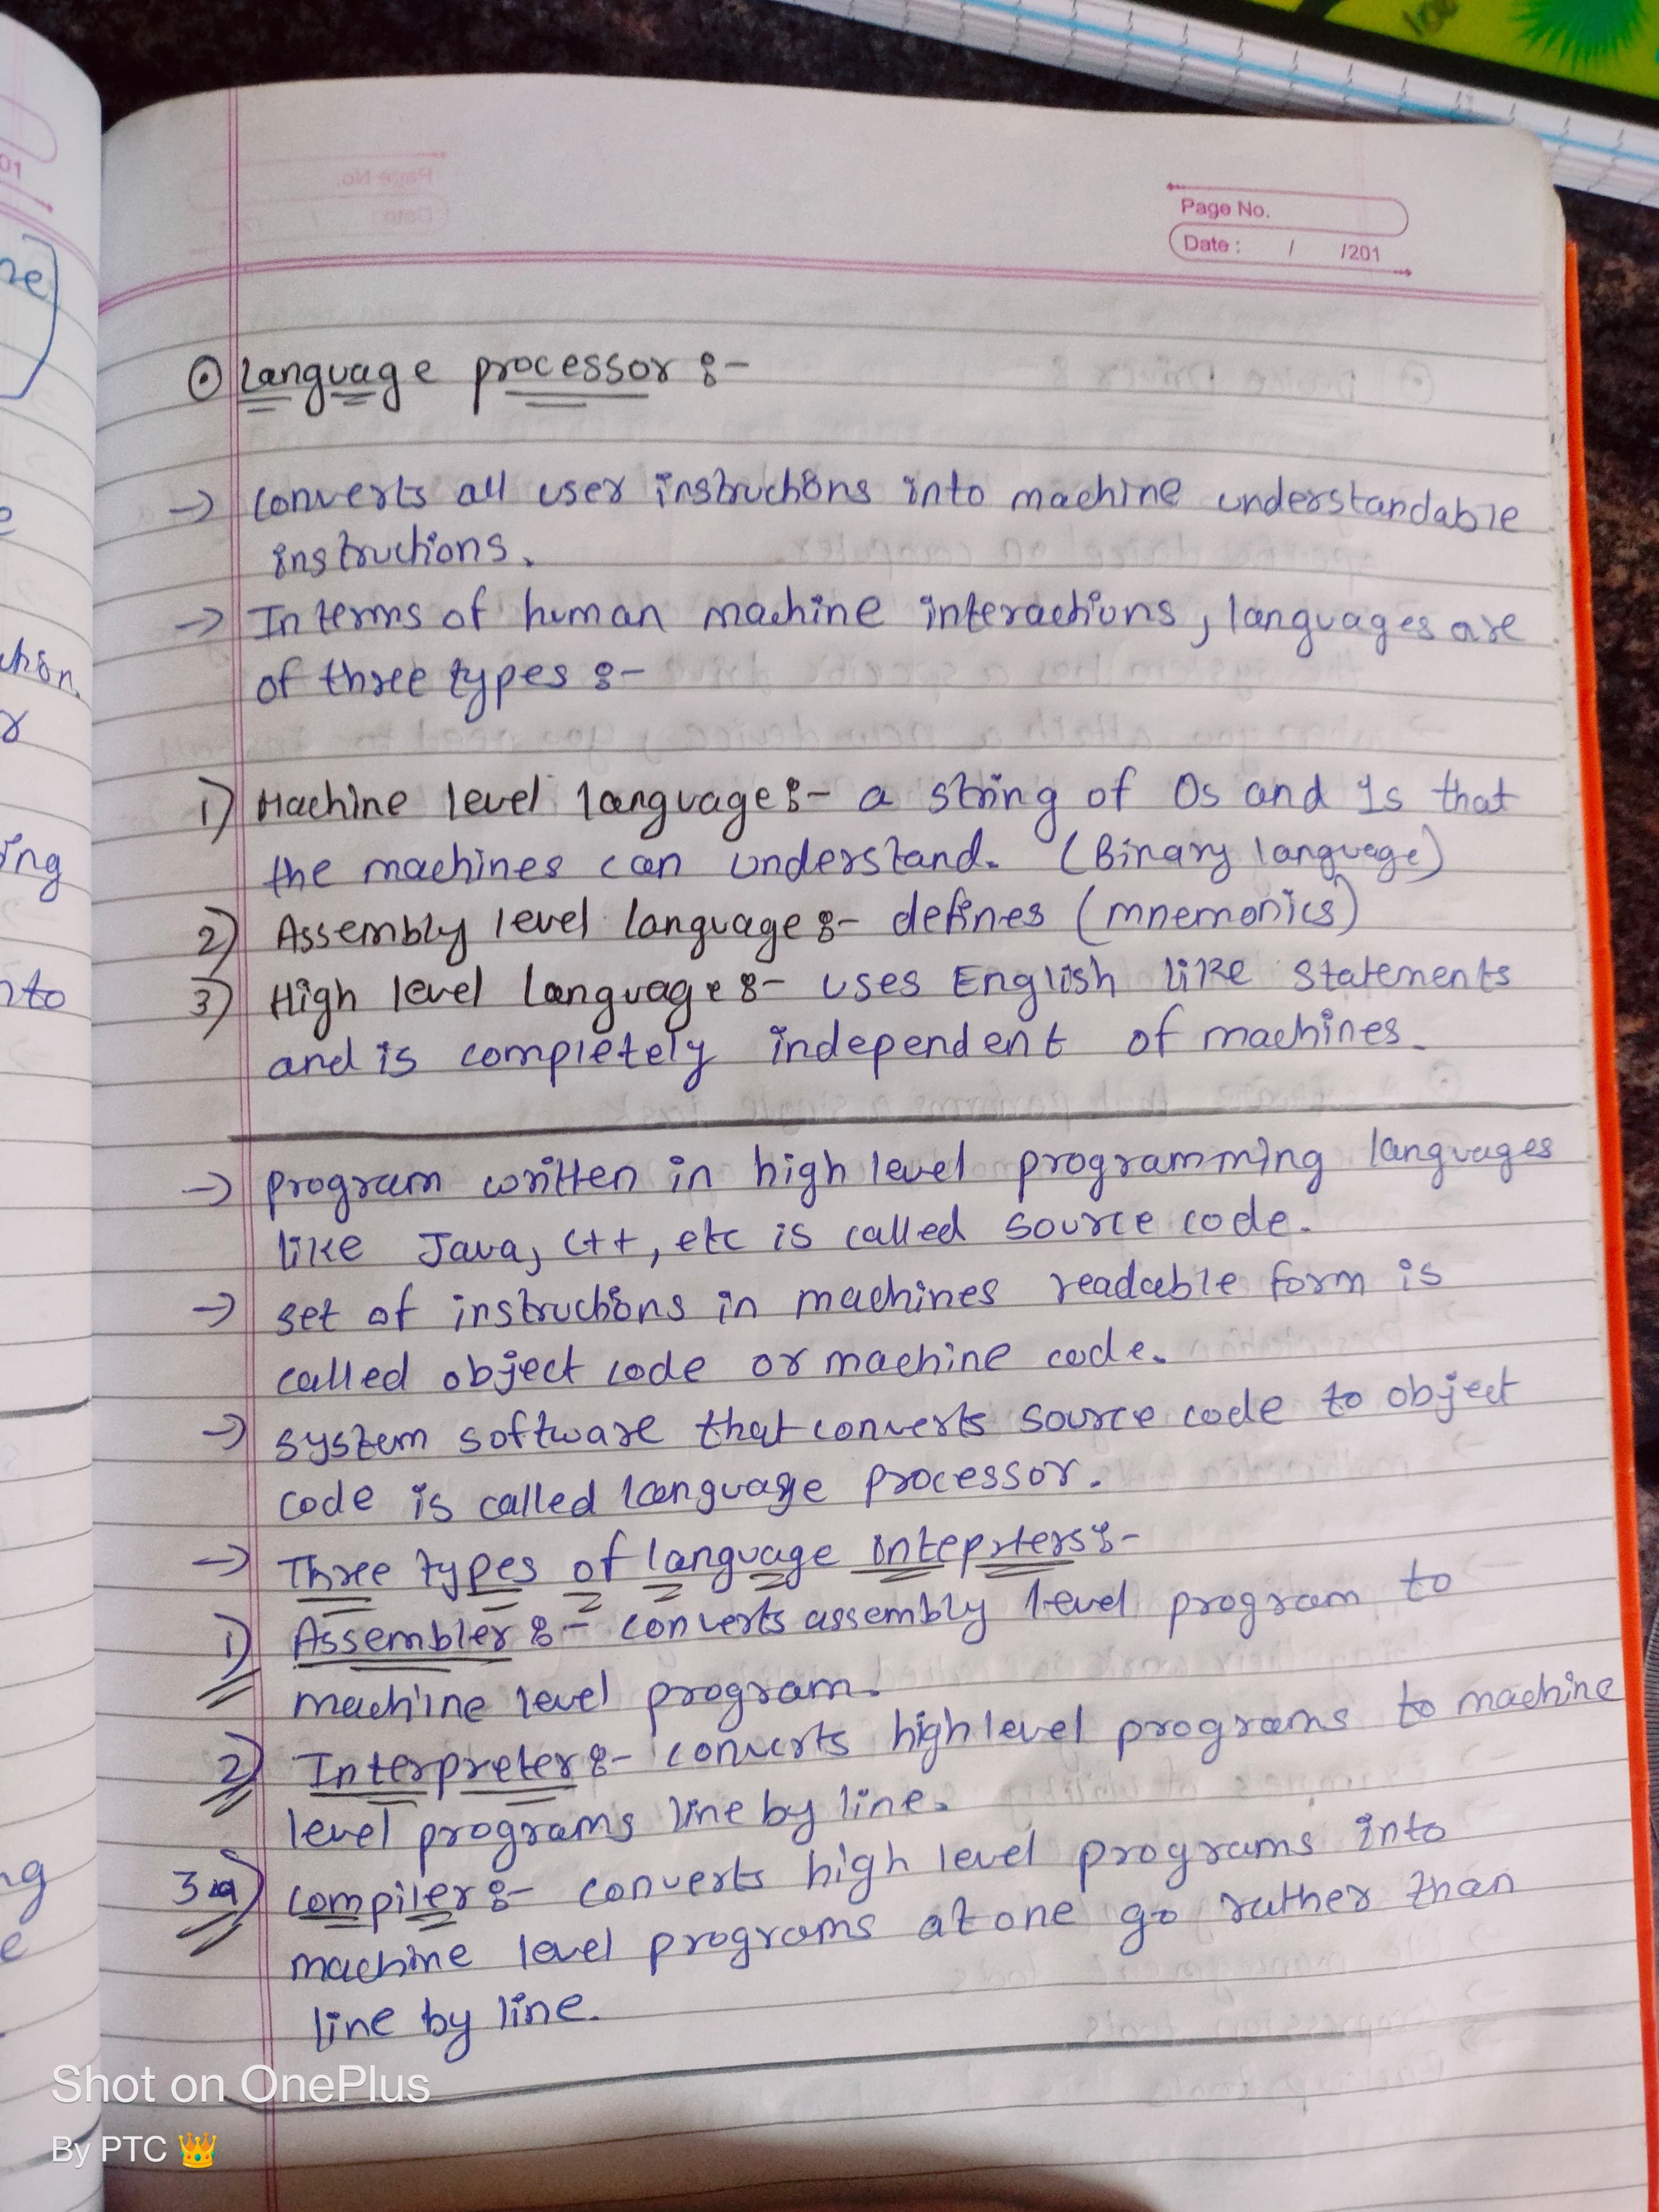 Page No.
Date : / /201
⊙ Language processor :-
→ converts all user instructions into machine understandable
instructions.
→ In terms of human machine interactions, languages are
of three types :-
1) Machine level language :- a string of 0s and 1s that
the machines can understand. (Binary language)
2) Assembly level language :- defines (mnemonics)
3) High level language :- uses English like statements
and is completely independent of machines.
→ program written in high level programming languages
like Java, C++, etc is called source code.
→ set of instructions in machines readable form is
called object code or machine code.
→ system software that converts source code to object
code is called language processor.
→ Three types of language inteprters :-
1) Assembler :- converts assembly level program to
machine level program.
2) Interpreter :- converts high level programs to machine
level programs line by line.
3) compiler :- converts high level programs into
machine level programs at one go rather than
line by line.
Shot on OnePlus
By PTC 👑